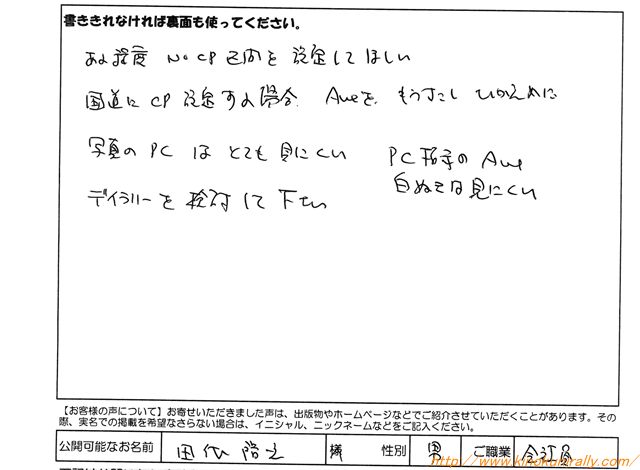 書ききれなければ裏面も使ってください。
ある程度 No CP 区間を 設定して ほしい
国道に CP 設定する場合 Aveを もうすこし ひかえめに
写真の PC は とても 見にくい
PC 指示の Ave
白ぬきは見にくい
デイラリーを 検討して 下さい
【お客様の声について】お寄せいただきました声は、出版物やホームページなどでご紹介させていただくことがあります。その
際、実名での掲載を希望なさらない場合は、イニシャル、ニックネームなどをご記入ください。
公開可能なお名前 田代 様 性別 男 ご職業 会社員
http://www.kinokuni-rally.com/